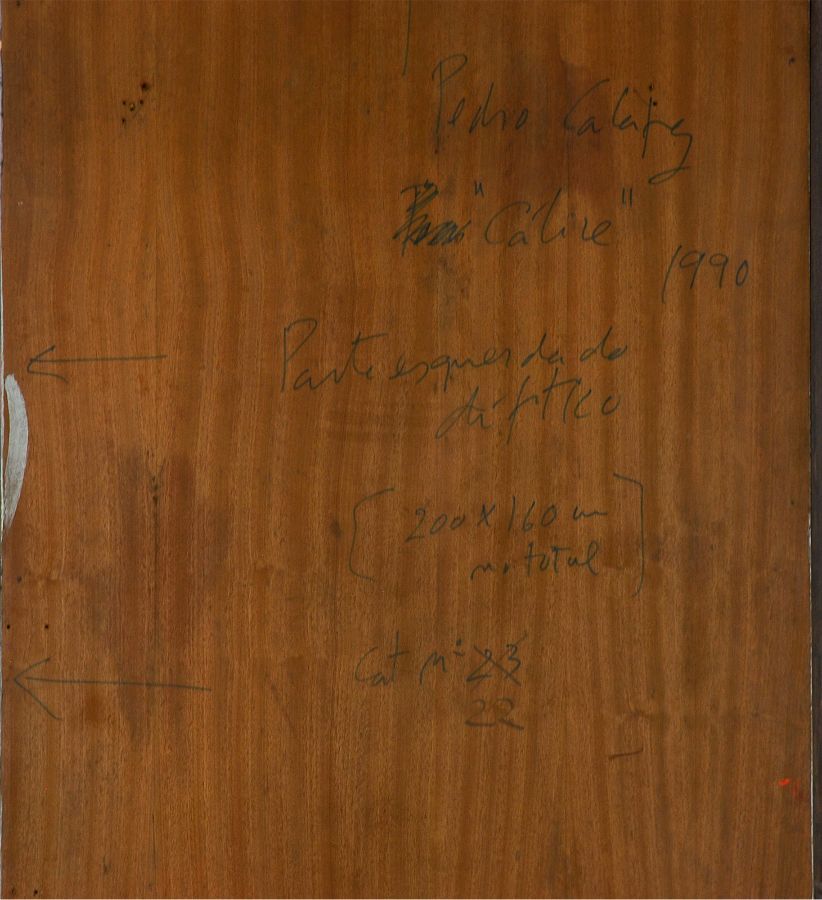 Pedro Calapez
"Cálice"
1990
Parte esquerda do
díptico
(200 x 160 cm
no total)
Cat nº 23
22